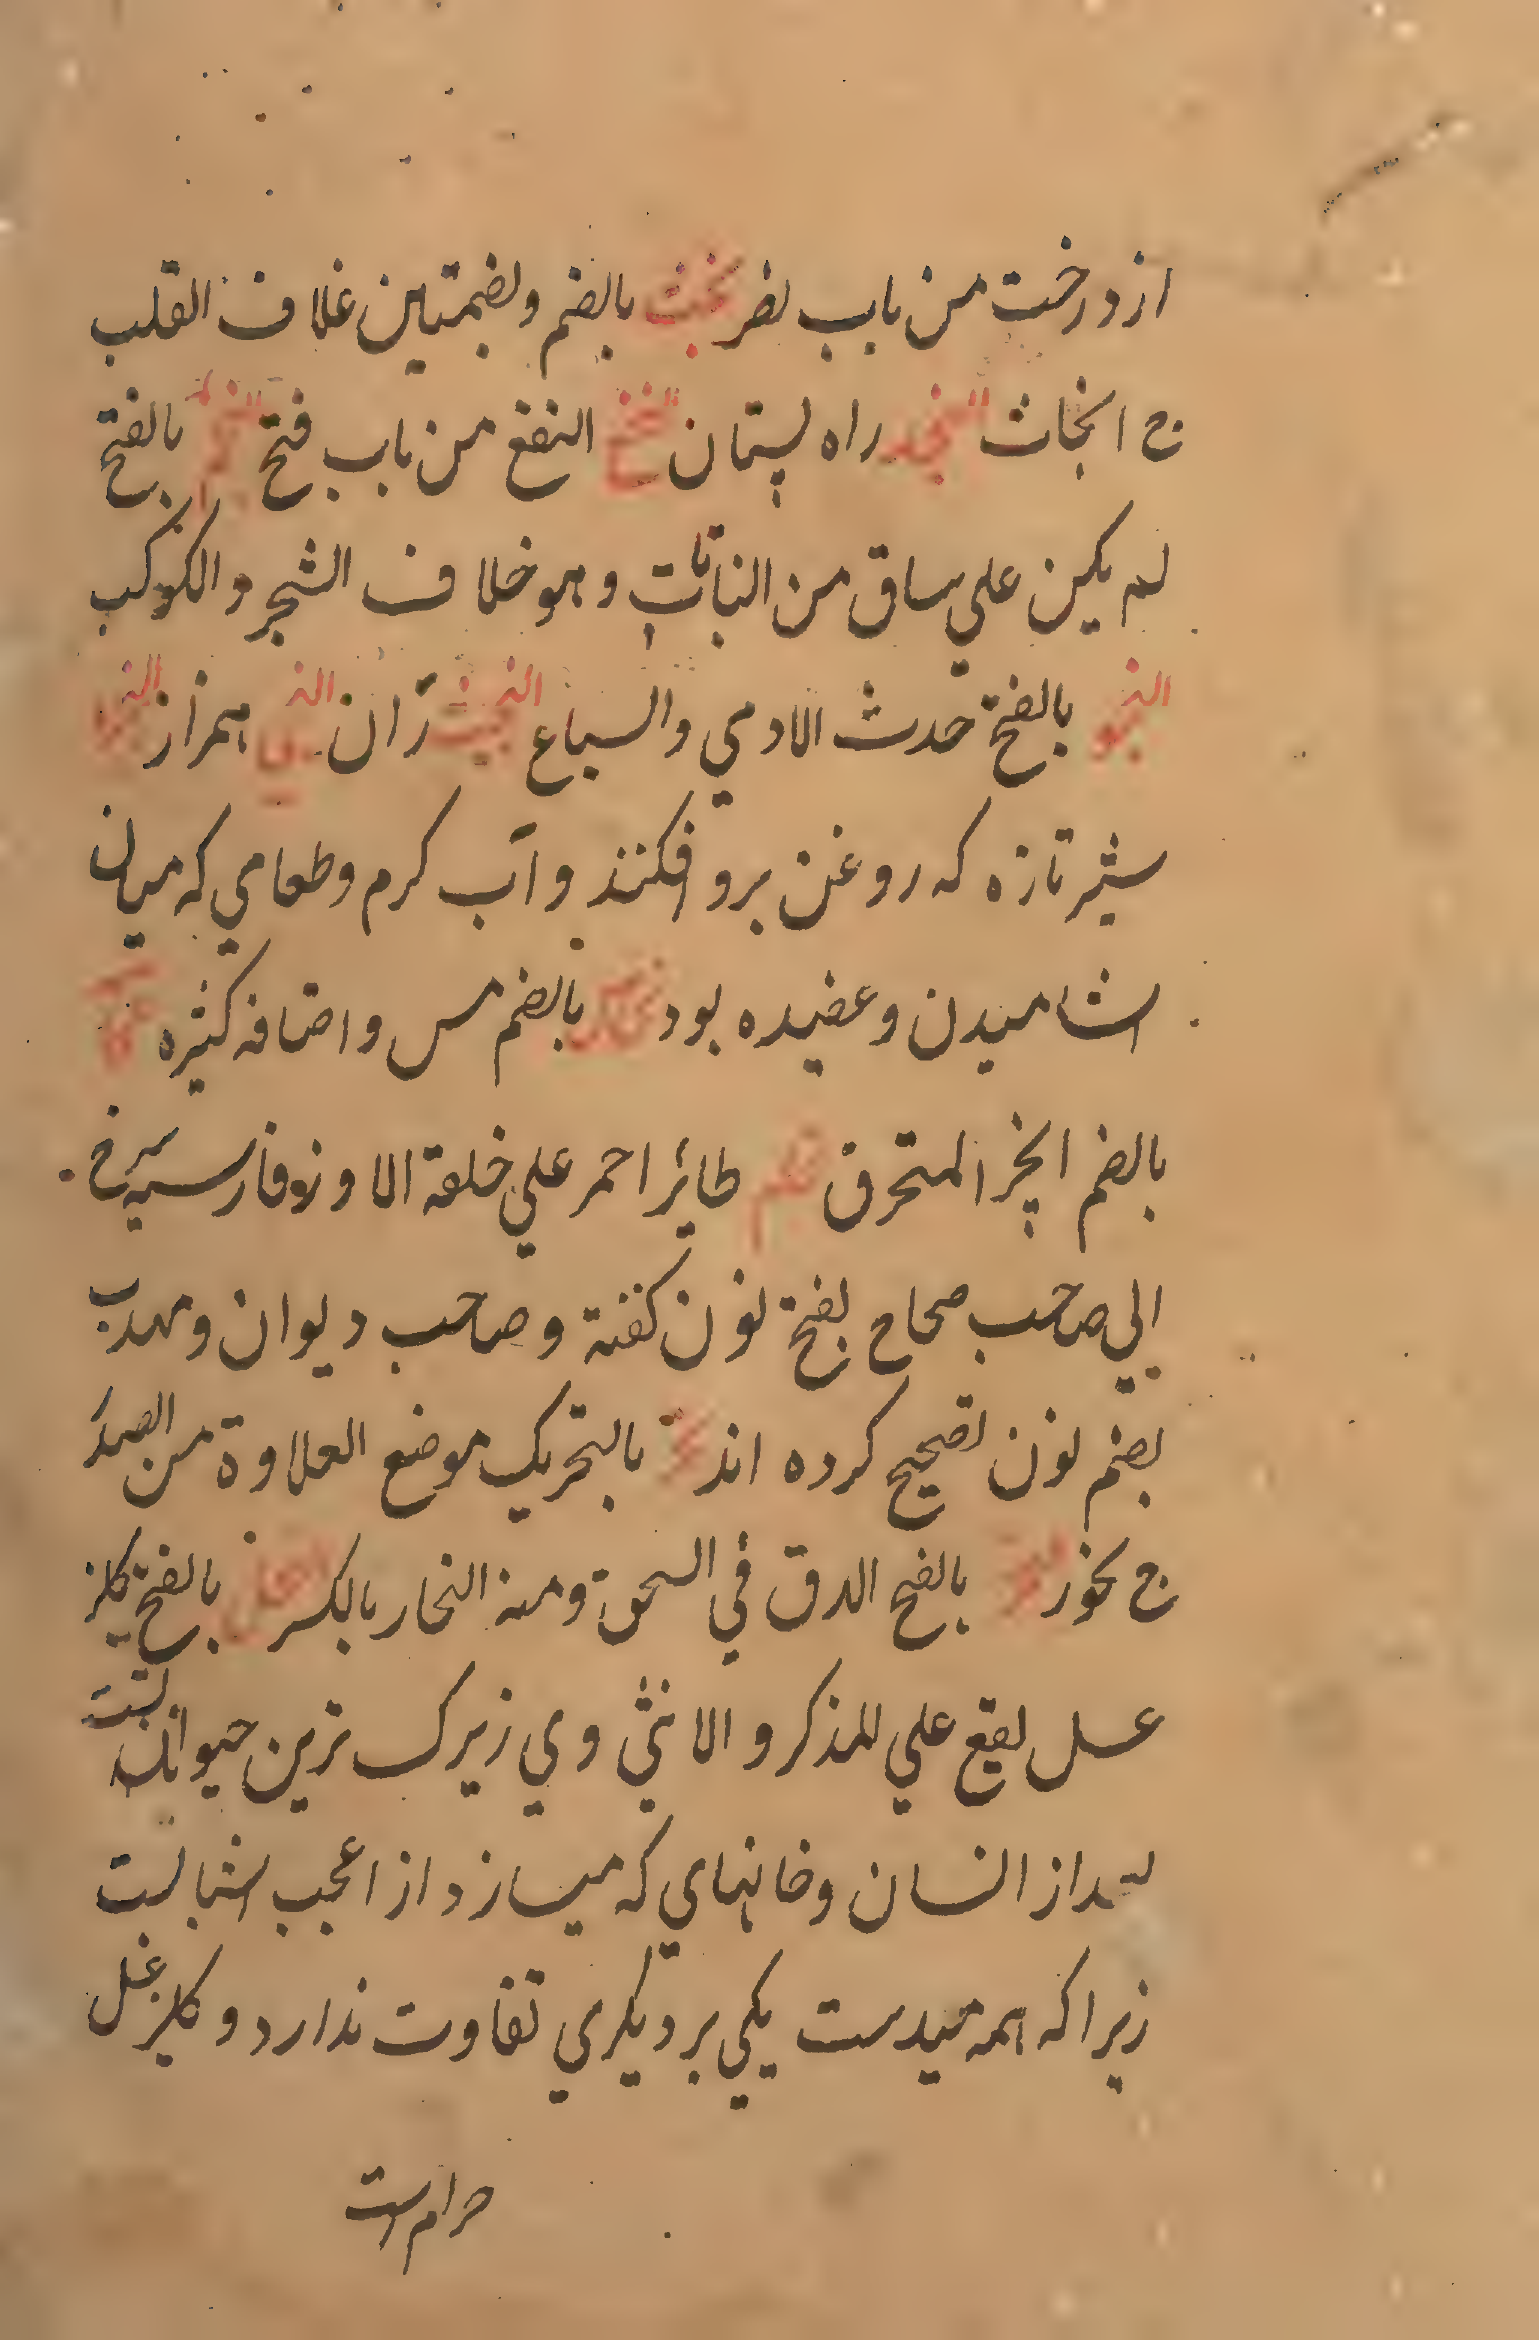 از درخت من باب نصر نجث بالضم وبضمتین غلاف القلب
ج انجاث النجد راه پستان النفع من باب فتح بالفتح
لم یکن علي ساق من النباتات وهو خلاف الشجر والکوکب
النجو بالفتح حدث الادمي والسباع النجیث ران همراز
شیر تازه که روغن برو افکنند وآب کرم وطعامي که میان
اشامیدن وعضیده بود نحاس بالضم مس واضافه کثیره
بالضم الخبز المتحرق طائر احمر علي خلقة الاوز وفارسیه سرخ
الي صاحب صحاح بفتح نون کفته وصاحب دیوان ومهذب
بضم نون تصحیح کرده اند نحر بالتحریک موضع العلاوة من الصدر
ج نحوز بالفتح الدق في السحق ومنه النحاز بالکسر النحل بالفتح کلیز
عسل یقع علي للمذکر والانثي وي زیرک ترین حیوانات است
بعد از انسان وخانهاي که میسازد از اعجب اشیا است
زیرا که همه مسدست یکي بر دیکري تفاوت ندارد وکلیز عسل
حرام است